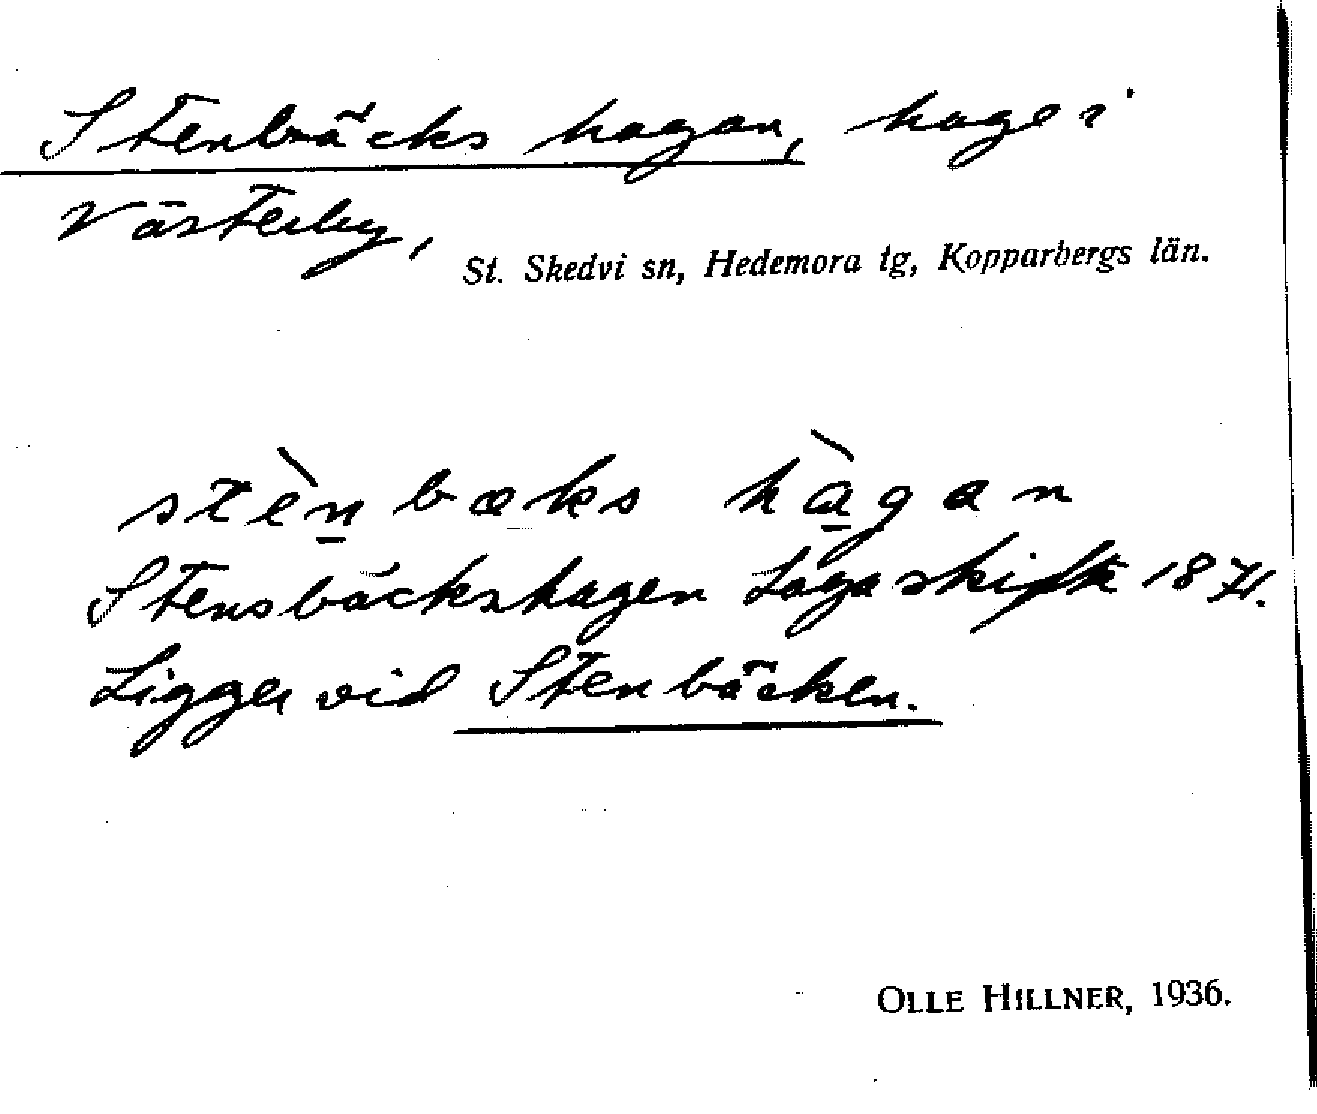 Stenbäcks hagan, hage i
Västerby,
St. Skedvi sn, Hedemora tg, Kopparbergs län.
stèn̲bæks hà̲gan
Stensbäckshagen Laga skifte
Ligger vid Stenbäcken.
OLLE HILLNER, 1936.